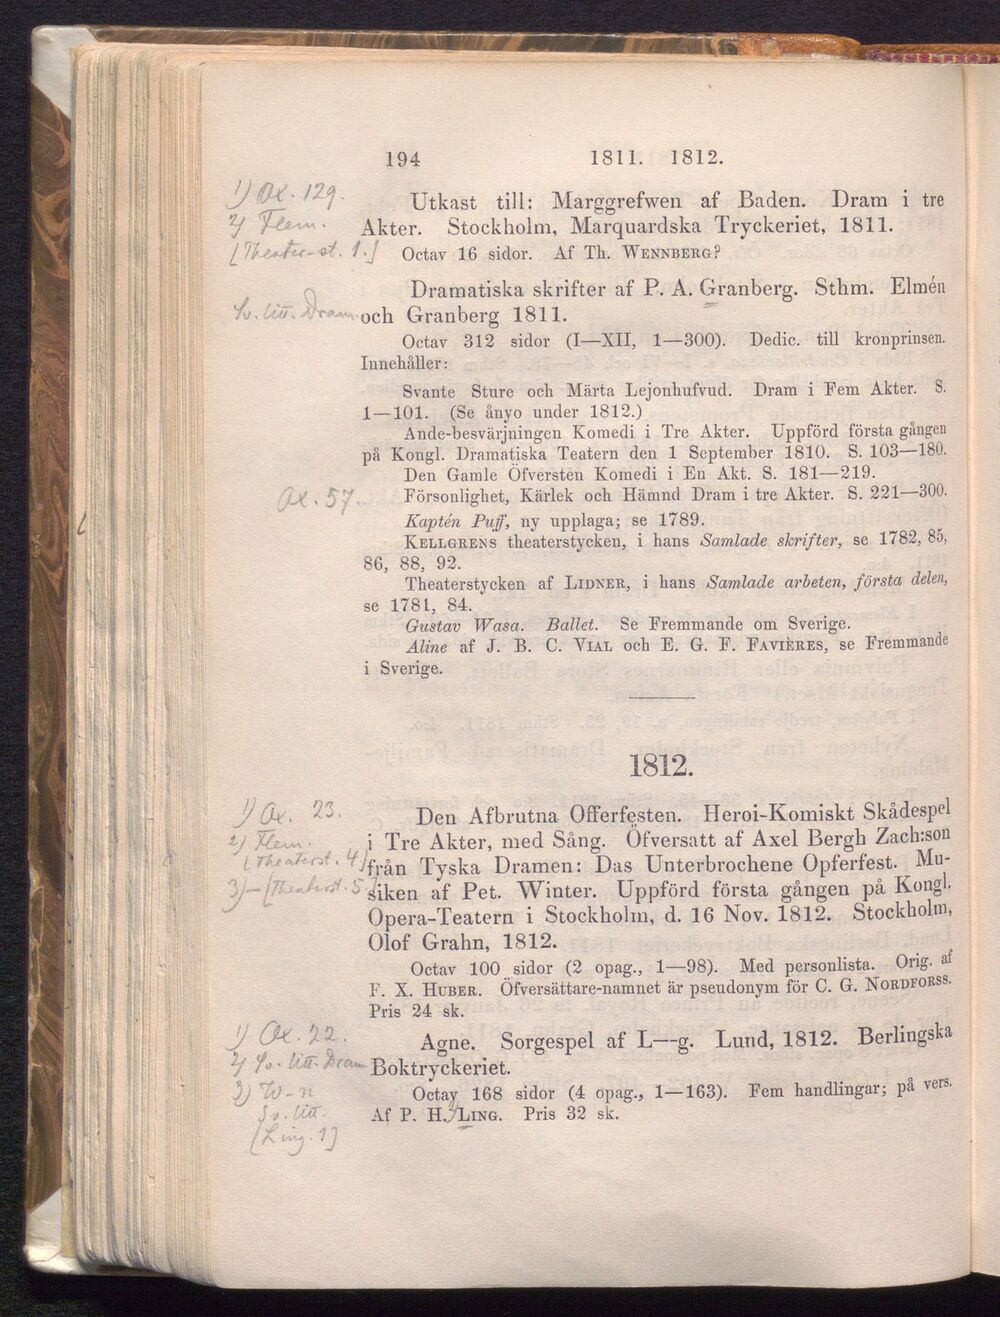 194 1811. 1812.
1) Ox. 129.
2) Flem.
[Theater-st. 1.]
Utkast till: Marggrefwen af Baden. Dram i tre
Akter. Stockholm, Marquardska Tryckeriet, 1811.
Octav 16 sidor. Af Th. WENNBERG?
Sv. litt. Dram.
Dramatiska skrifter af P. A. Granberg. Sthm. Elmén
och Granberg 1811.
Octav 312 sidor (I—XII, 1—300). Dedic. till kronprinsen.
Innehåller:
Svante Sture och Märta Lejonhufvud. Dram i Fem Akter. S.
1—101. (Se ånyo under 1812.)
Ande-besvärjningen Komedi i Tre Akter. Uppförd första gången
på Kongl. Dramatiska Teatern den 1 September 1810. S. 103—180.
Den Gamle Öfversten Komedi i En Akt. S. 181—219.
Ox. 57.
Försonlighet, Kärlek och Hämnd Dram i tre Akter. S. 221—300.
Kaptén Puff, ny upplaga; se 1789.
KELLGRENS theaterstycken, i hans Samlade skrifter, se 1782, 85,
86, 88, 92.
Theaterstycken af LIDNER, i hans Samlade arbeten, första delen,
se 1781, 84.
Gustav Wasa. Ballet. Se Fremmande om Sverige.
Aline af J. B. C. VIAL och E. G. F. FAVIÈRES, se Fremmande
i Sverige.
1812.
1) Ox. 23.
2) Flem.
[Theaterst. 4]
3) — [Theaterst. 5.]
Den Afbrutna Offerfesten. Heroi-Komiskt Skådespel
i Tre Akter, med Sång. Öfversatt af Axel Bergh Zach:son
från Tyska Dramen: Das Unterbrochene Opferfest. Mu-
siken af Pet. Winter. Uppförd första gången på Kongl.
Opera-Teatern i Stockholm, d. 16 Nov. 1812. Stockholm,
Olof Grahn, 1812.
Octav 100 sidor (2 opag., 1—98). Med personlista. Orig. af
F. X. HUBER. Öfversättare-namnet är pseudonym för C. G. NORDFORSS.
Pris 24 sk.
1) Ox. 22.
2) Sv. litt. Dram.
3) W-n
Sv. litt.
[Ling. 1]
Agne. Sorgespel af L—g. Lund, 1812. Berlingska
Boktryckeriet.
Octav 168 sidor (4 opag., 1—163). Fem handlingar; på vers.
Af P. H. LING. Pris 32 sk.